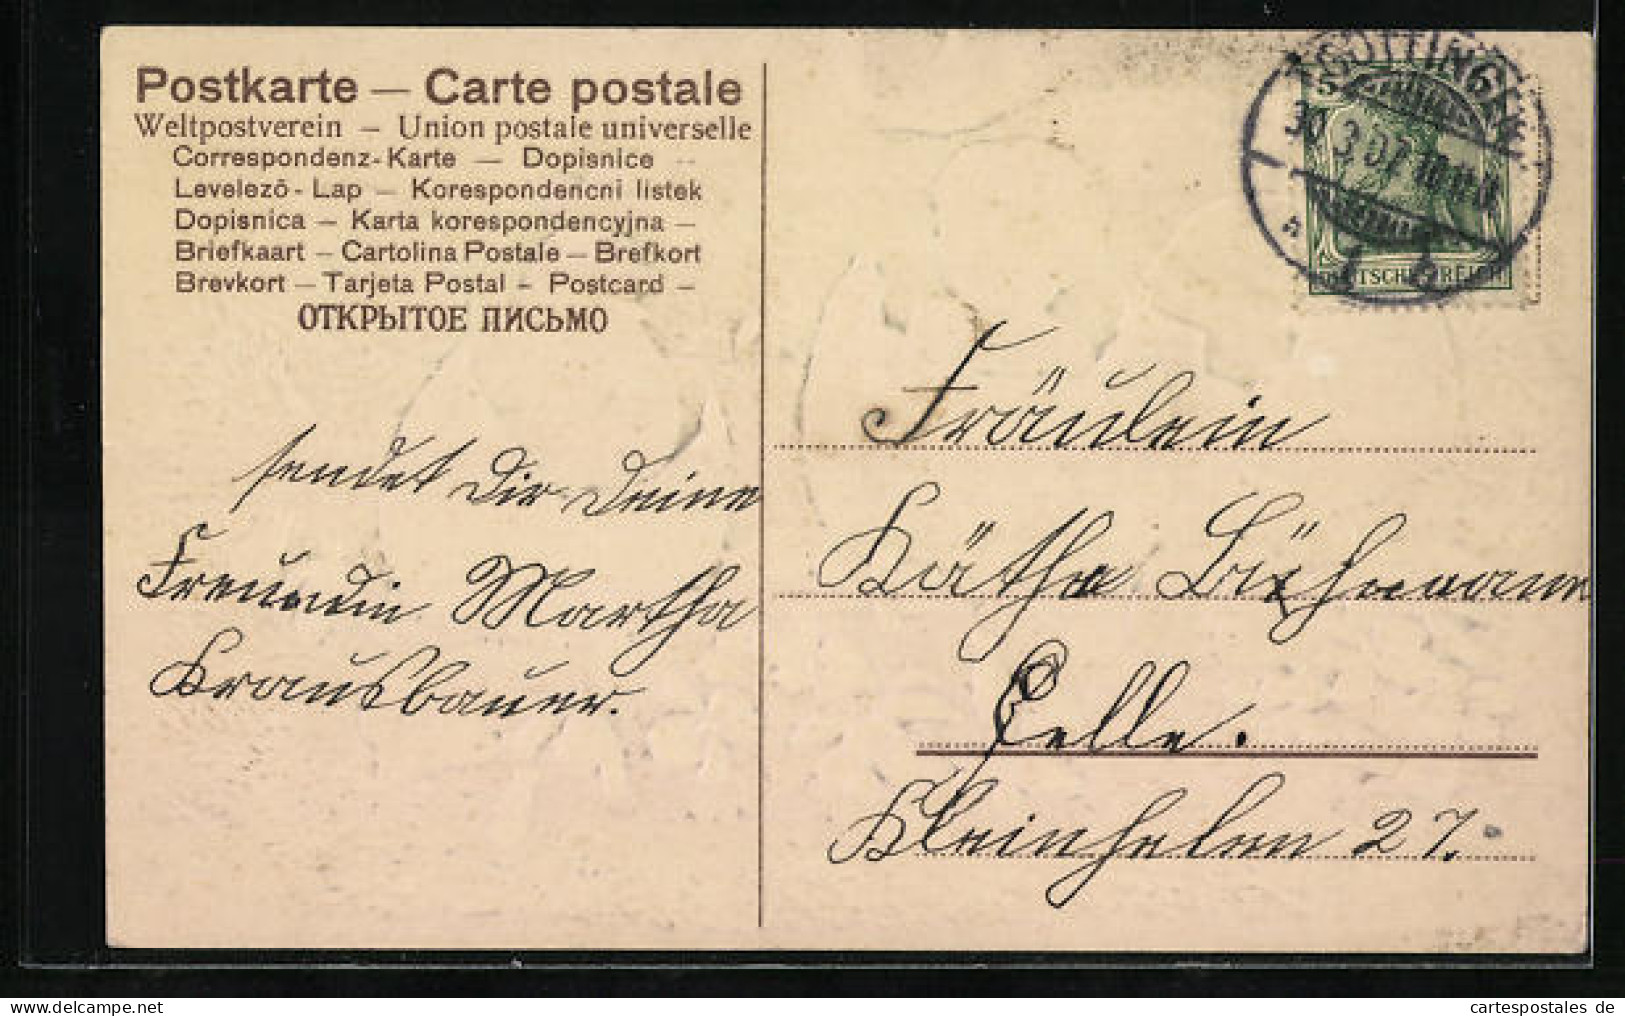 Postkarte — Carte postale
Weltpostverein — Union postale universelle
Correspondenz-Karte — Dopisnice --
Levelező - Lap — Korespondencni listek
Dopisnica — Karta korespondencyjna —
Briefkaart — Cartolina Postale — Brefkort
Brevkort — Tarjeta Postal - Postcard —
ОТКРЫТОЕ ПИСЬМО
sendet Dir Deine
Freundin Martha
Krausbauer.
GÖTTINGEN
30.3.07
DEUTSCHES REICH
Fräulein
Käthe Lühmann
Celle.
Kleinhelen 27.
cartespostales de